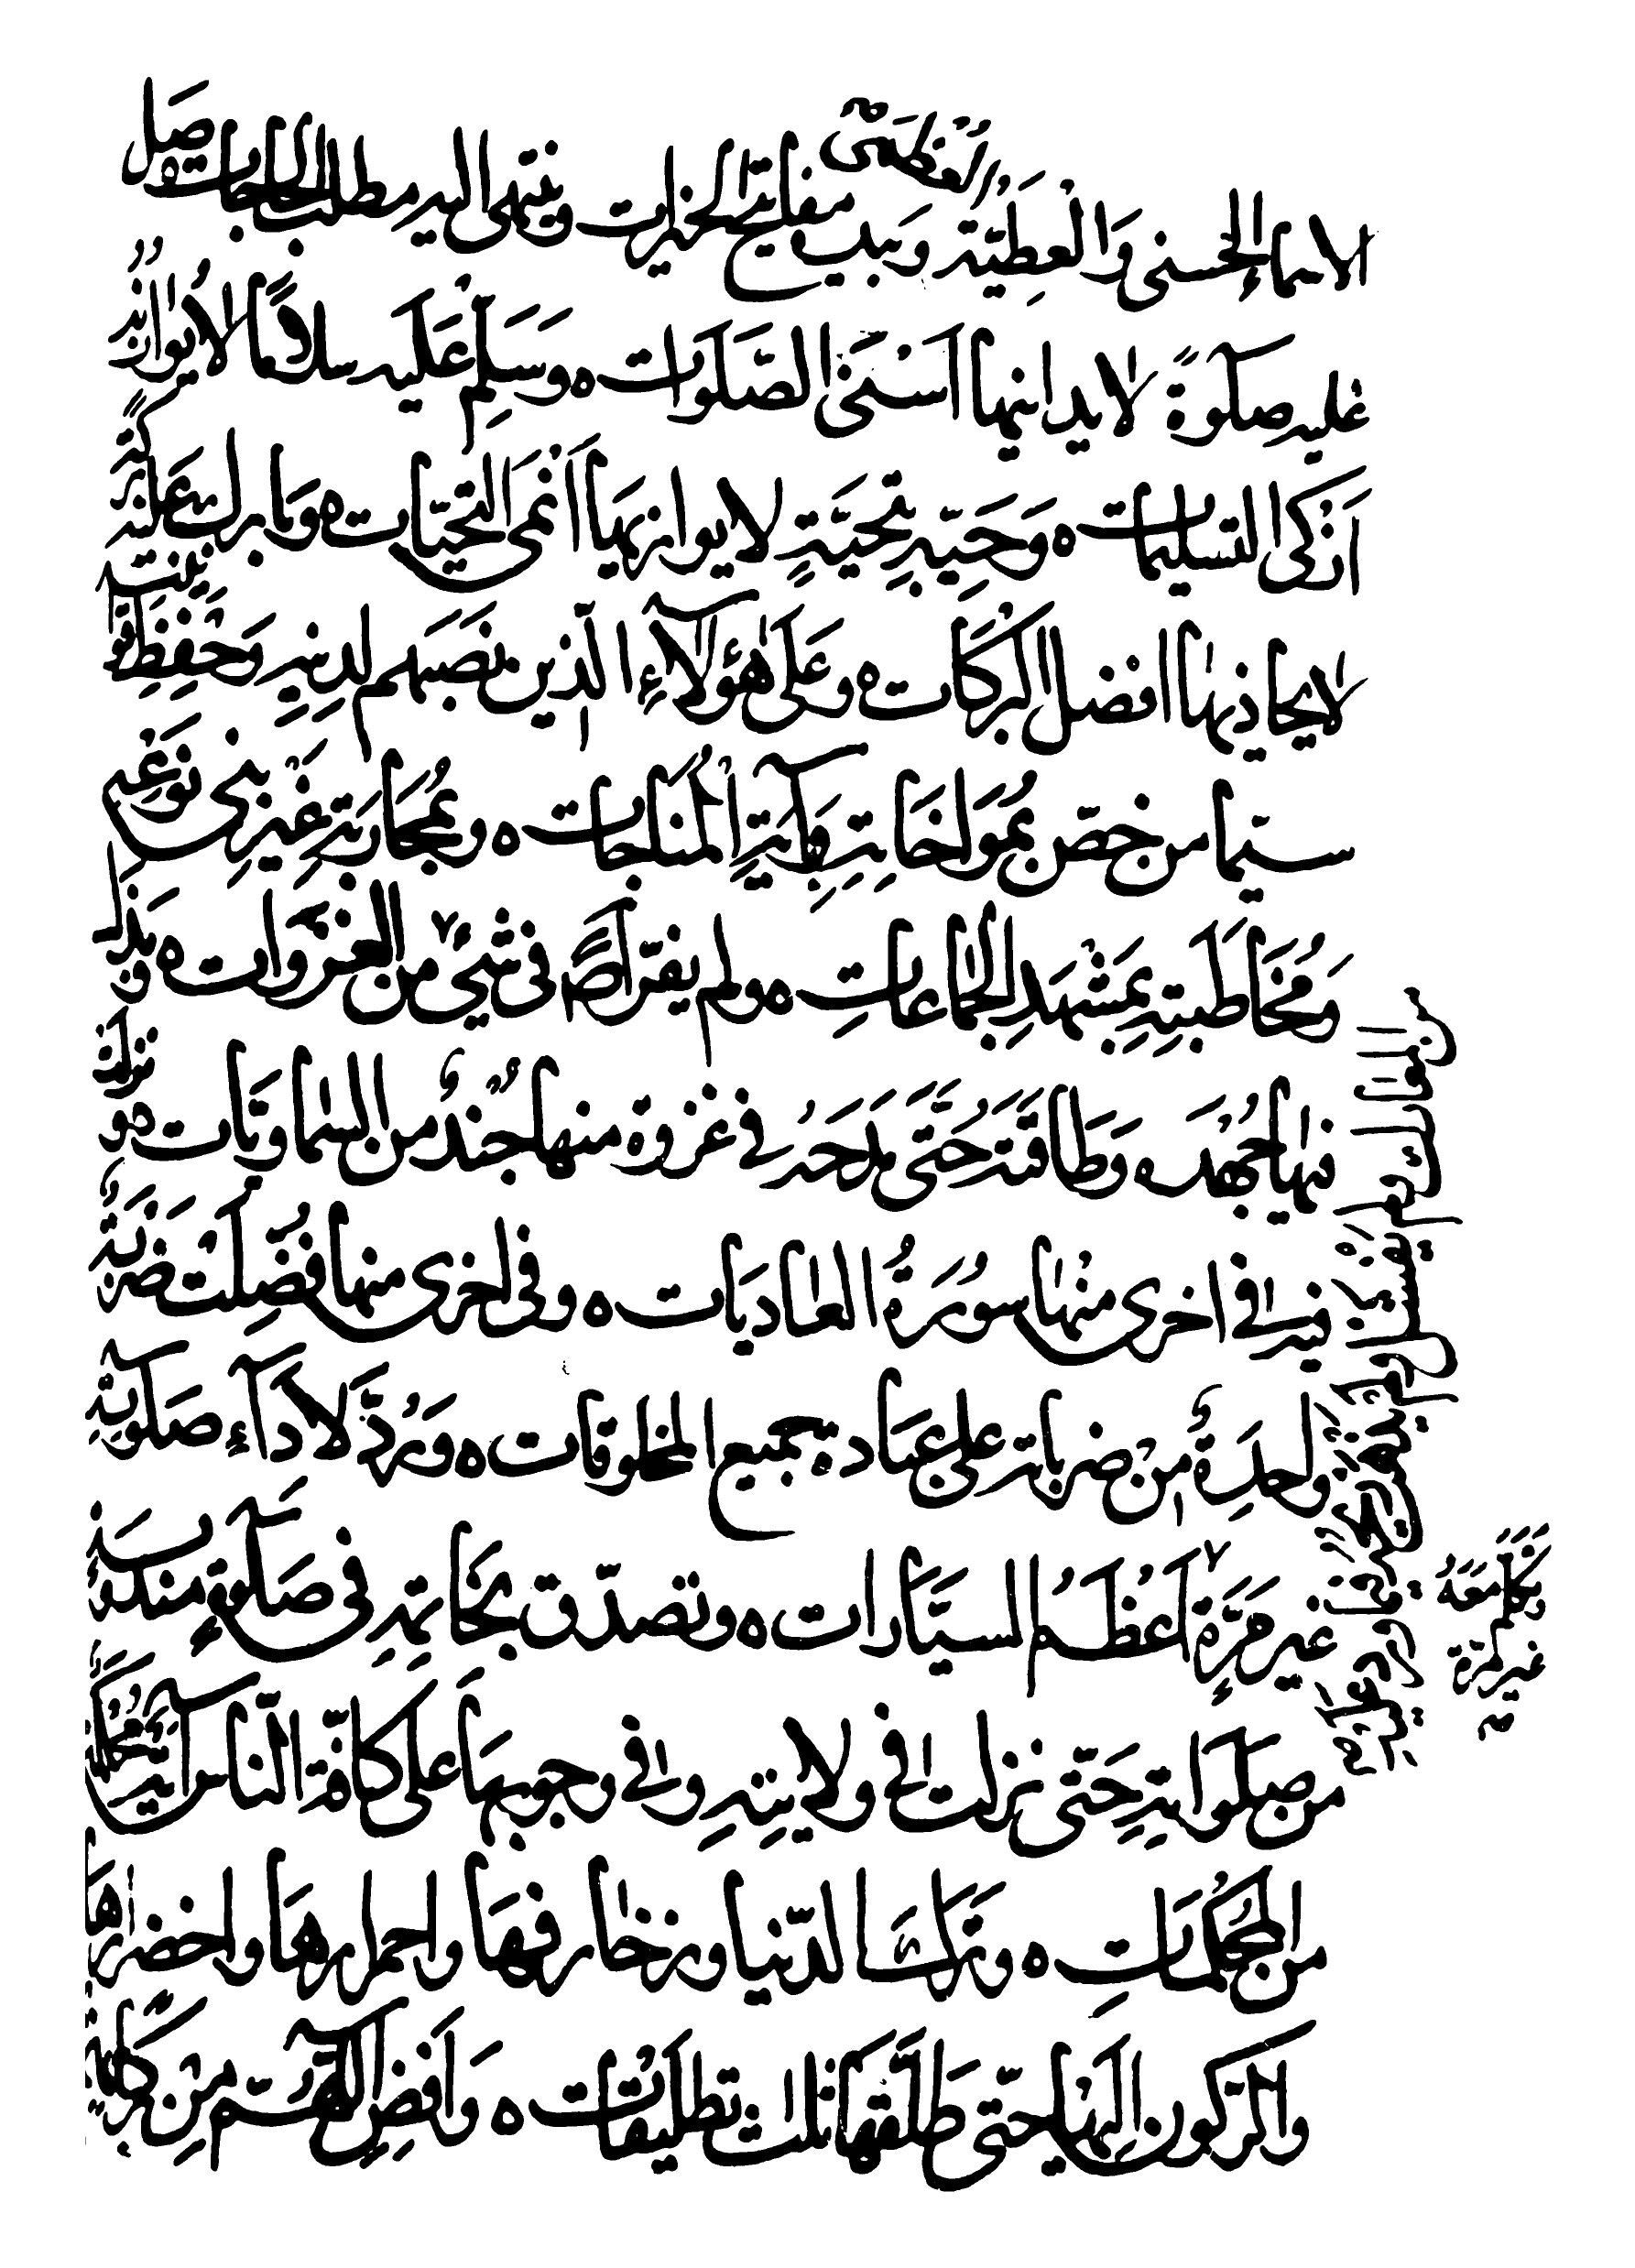 العظمى
الاسماء الحسنى والعطيّة وبيده مفاتيح الخيرات وينتهى اليه مطلب الحاجات فصل
عليه صلوة لا يدانيها اسنى الصلوات ه وسلم عليه سلاما لا يوازنه
ازكى التسليمات ه وحيّه بتحيّة لا يوازيها انمى التحيّات ه وبارك عليه بركة
لا يحاذيها افضل البركات ه وعلى هؤلاء الّذين نصبهم لدينه وحفظة
سيّما من خصّ بمواخاته كاية المناجات ه وبمحاربة غير بنى نوعه
ومخاطبته بمشهد الجماعات ه ولم يفتر اصلا فى شئ من الغزوات ه وبذل
فيها جهده وطاقته حتى مدحه فى غزوة منها جند من السماويات ه ونزلت
فيه فى اخرى منها سورة العاديات ه وفى اخرى منها فضّلت ضربة
واحدة من ضرباته على عبادة جميع المخلوقات ه وردّ لاداء صلوته
غير مرّة اعظم السيّارات ه وتصدّق بخاتمه فى صلوة مندوبة
من صلواته حتّى نزلت فى ولايته وفى وجوبها على كافّة النّاس آية محكمة
من المحكمات ه وترك الدنيا وزخارفها واحمرارها واخضرارها
والركون اليها حتى طلقها ثلث تطليقات ه وافض اللهم من بركاته